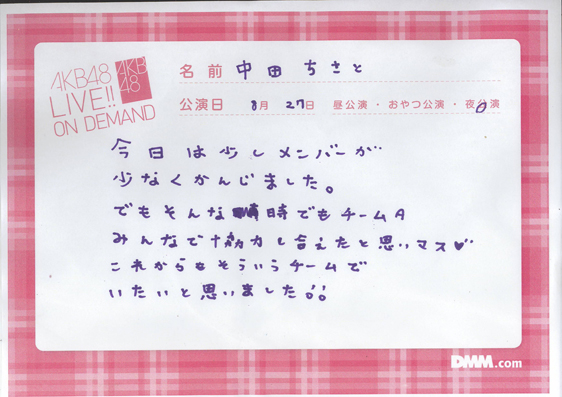 AKB48
LIVE!!
ON DEMAND
AKB
48
名前 中田ちさと
公演日 8月27日 昼公演・おやつ公演・夜公演
今日は少しメンバーが
少なくかんじました。
でもそんな時でもチームA
みんなで協力し合えたと思いマス♥
これからもそういうチームで
いたいと思いました!!
DMM.com